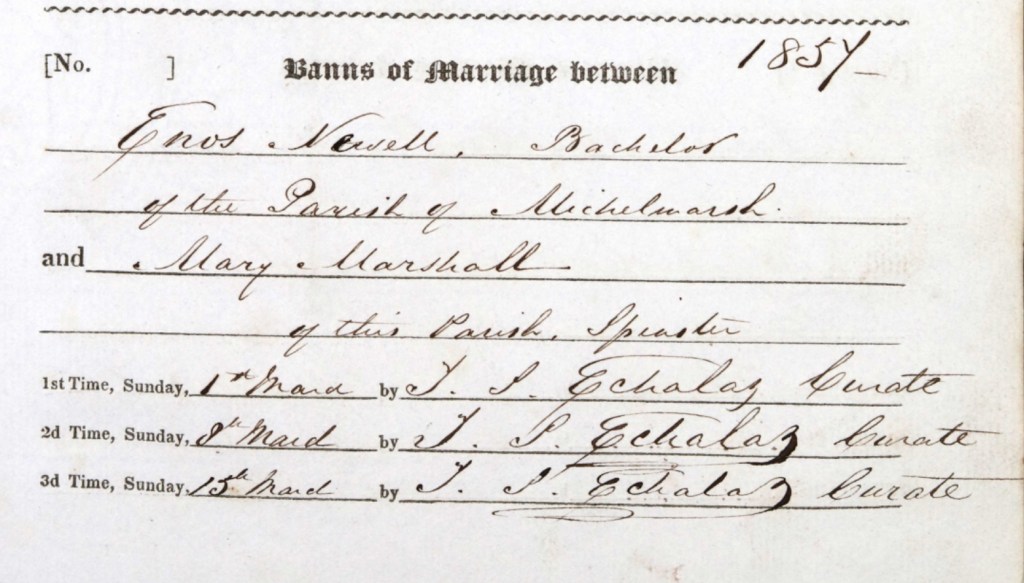 [No. ] Banns of Marriage between 1857
Enos Newell, Bachelor
of the Parish of Michelmarsh.
and Mary Marshall
of this Parish, Spinster
1st Time, Sunday, 1st March by T. S. Echalaz Curate
2d Time, Sunday, 8th March by T. S. Echalaz Curate
3d Time, Sunday, 15th March by T. S. Echalaz Curate